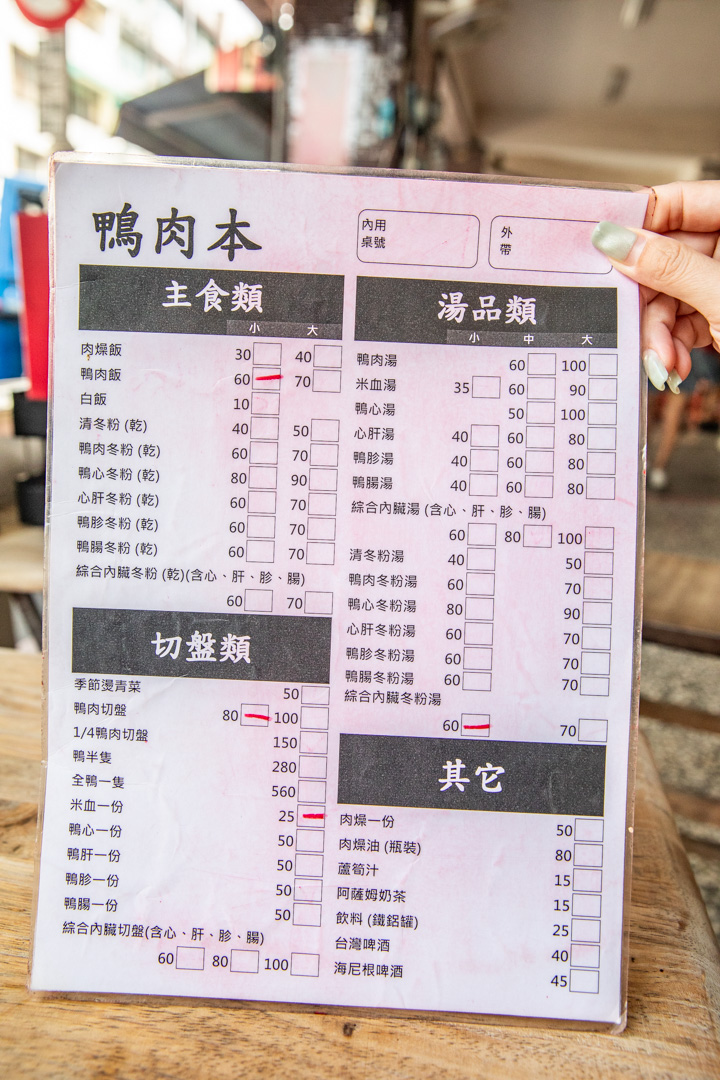 鴨肉本
內用
桌號
外
帶
主食類
小 大
肉燥飯 30 40
鴨肉飯 60 70
白飯 10
清冬粉 (乾) 40 50
鴨肉冬粉 (乾) 60 70
鴨心冬粉 (乾) 80 90
心肝冬粉 (乾) 60 70
鴨胗冬粉 (乾) 60 70
鴨腸冬粉 (乾) 60 70
綜合內臟冬粉 (乾)(含心、肝、胗、腸)
60 70
切盤類
季節燙青菜 50
鴨肉切盤 80 100
1/4鴨肉切盤 150
鴨半隻 280
全鴨一隻 560
米血一份 25
鴨心一份 50
鴨肝一份 50
鴨胗一份 50
鴨腸一份 50
綜合內臟切盤(含心、肝、胗、腸)
60 80 100
湯品類
小 中 大
鴨肉湯 60 100
米血湯 35 60 90
鴨心湯 50 100
心肝湯 40 60 80
鴨胗湯 40 60 80
鴨腸湯 40 60 80
綜合內臟湯 (含心、肝、胗、腸)
60 80 100
清冬粉湯 40 50
鴨肉冬粉湯 60 70
鴨心冬粉湯 80 90
心肝冬粉湯 60 70
鴨胗冬粉湯 60 70
鴨腸冬粉湯 60 70
綜合內臟冬粉湯
60 70
其它
肉燥一份 50
肉燥油 (瓶裝) 80
蘆筍汁 15
阿薩姆奶茶 15
飲料 (鐵鋁罐) 25
台灣啤酒 40
海尼根啤酒 45